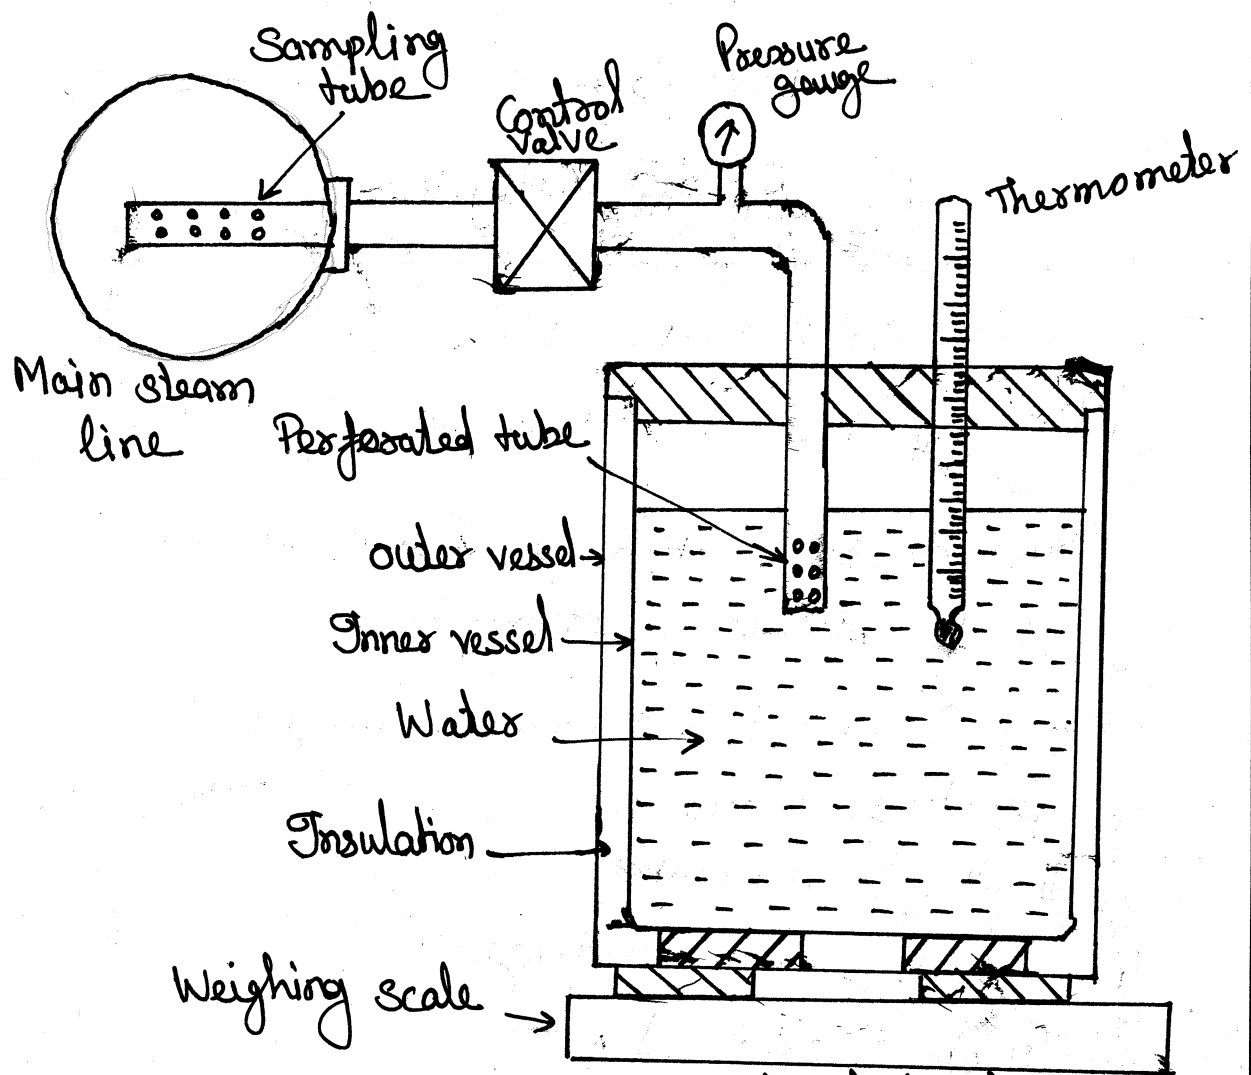 Sampling
tube
Control
valve
Pressure
gauge
Thermometer
Main steam
line
Perforated tube
outer vessel
Inner vessel
Water
Insulation
Weighing scale